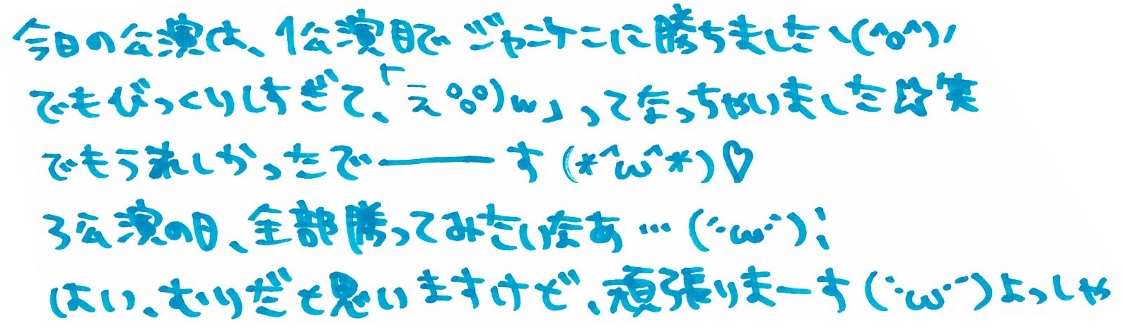 今日の公演は、1公演目でジャンケンに勝ちました\(^o^)/
でもびっくりしすぎて、「え゜゜)w」ってなっちゃいました☆笑
でもうれしかったで――――す(*^ω^*)♡
3公演の日、全部勝ってみたいなあ…(´・ω・`);
はい、むりだと思いますけど、頑張りまーす(´・ω・`)よっしゃ